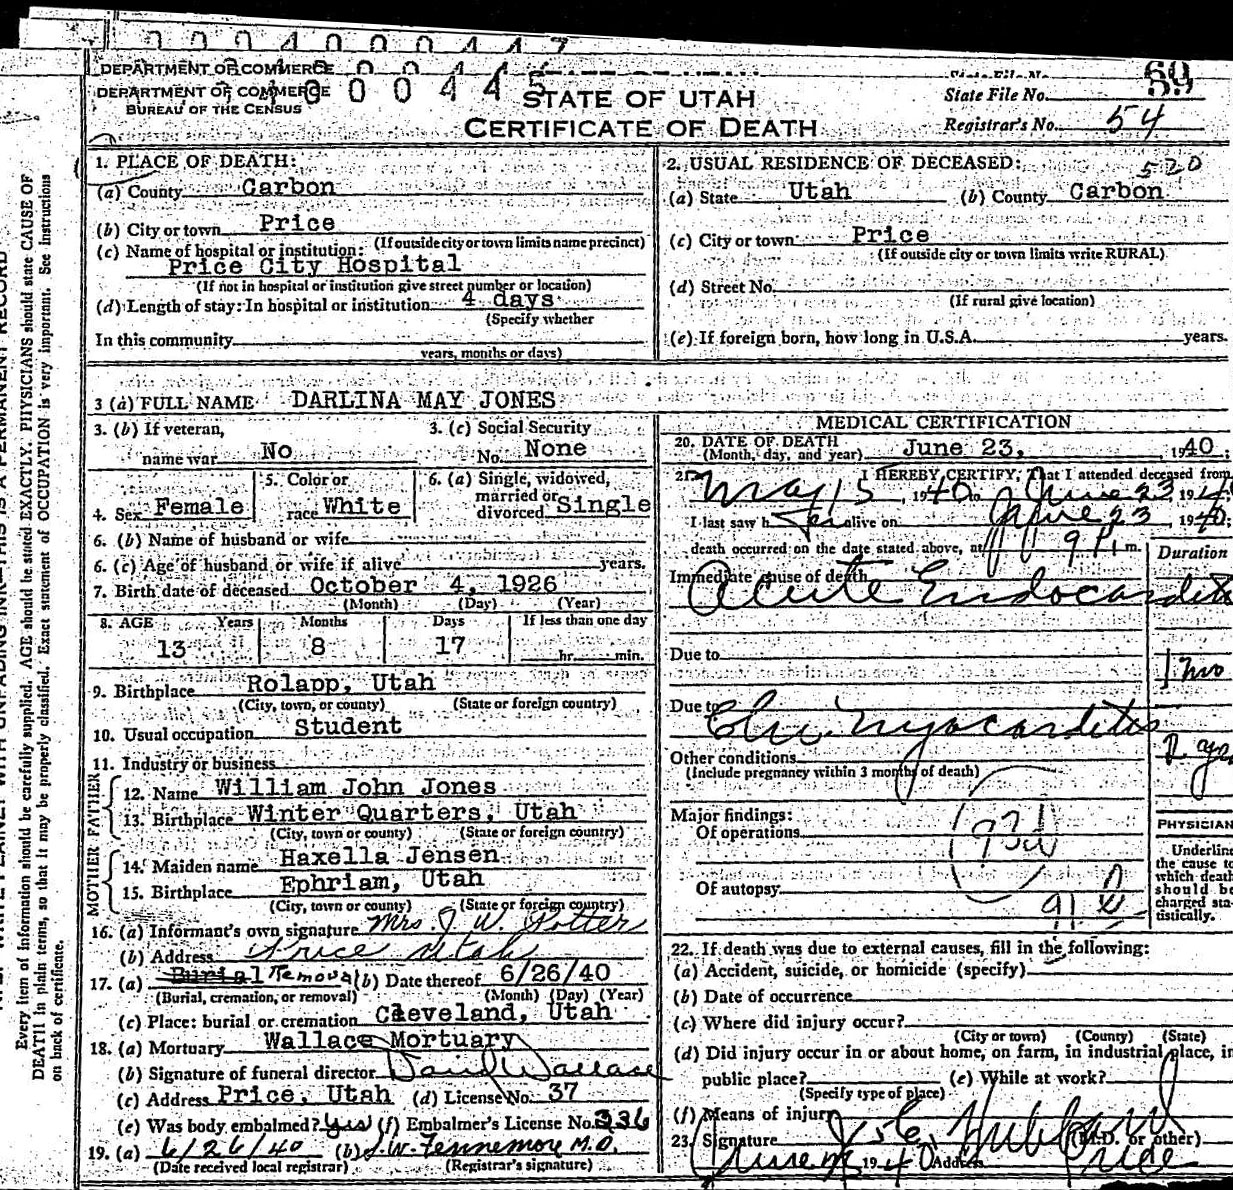 DEPARTMENT OF COMMERCE
DEPARTMENT OF COMMERCE
BUREAU OF THE CENSUS
STATE OF UTAH
CERTIFICATE OF DEATH
State File No. 69
Registrar's No. 54
1. PLACE OF DEATH:
(a) County Carbon
(b) City or town Price
(If outside city or town limits name precinct)
(c) Name of hospital or institution:
Price City Hospital
(If not in hospital or institution give street number or location)
(d) Length of stay: In hospital or institution 4 days
(Specify whether
In this community
years, months or days)
2. USUAL RESIDENCE OF DECEASED: 520
(a) State Utah (b) County Carbon
(c) City or town Price
(If outside city or town limits write RURAL)
(d) Street No.
(If rural give location)
(e) If foreign born, how long in U.S.A. years.
3 (a) FULL NAME DARLINA MAY JONES
3. (b) If veteran, name war No
3. (c) Social Security No. None
4. Sex Female
5. Color or race White
6. (a) Single, widowed, married or divorced Single
6. (b) Name of husband or wife
6. (c) Age of husband or wife if alive years.
7. Birth date of deceased October 4, 1926
(Month) (Day) (Year)
8. AGE Years Months Days If less than one day
13 8 17 hr. min.
9. Birthplace Rolapp, Utah
(City, town, or county) (State or foreign country)
10. Usual occupation Student
11. Industry or business
FATHER
12. Name William John Jones
13. Birthplace Winter Quarters, Utah
(City, town or county) (State or foreign country)
MOTHER
14. Maiden name Haxella Jensen
15. Birthplace Ephriam, Utah
(City, town or county) (State or foreign country)
16. (a) Informant's own signature Mrs. J. W. Potter
(b) Address Price Utah
17. (a) Burial Removal (b) Date thereof 6/26/40
(Burial, cremation, or removal) (Month) (Day) (Year)
(c) Place: burial or cremation Cleveland, Utah
18. (a) Mortuary Wallace Mortuary
(b) Signature of funeral director Wallace
(c) Address Price, Utah (d) License No. 37
(e) Was body embalmed? Yes (f) Embalmer's License No. 336
19. (a) 6/26/40 (b) J. W. Fennemore M.D.
(Date received local registrar) (Registrar's signature)
MEDICAL CERTIFICATION
20. DATE OF DEATH
(Month, day, and year) June 23, 1940
21. I HEREBY CERTIFY, That I attended deceased from
May 15, 1940 to June 23 1940
I last saw her alive on June 23, 1940;
death occurred on the date stated above, at 9 P. m.
Duration
Immediate cause of death
Acute Endocarditis
Due to 1 mo
Due to Chr. Myocarditis
Other conditions
(Include pregnancy within 3 months of death)
Major findings:
Of operations
Of autopsy
PHYSICIAN
Underline
the cause to
which death
should be
charged sta-
tistically.
22. If death was due to external causes, fill in the following:
(a) Accident, suicide, or homicide (specify)
(b) Date of occurrence
(c) Where did injury occur?
(City or town) (County) (State)
(d) Did injury occur in or about home, on farm, in industrial place, in
public place? (e) While at work?
(Specify type of place)
(f) Means of injury
23. Signature Hubbard (M.D. or other)
1940 Address Price
Every item of information should be carefully supplied. AGE should be stated EXACTLY. PHYSICIANS should state CAUSE OF
DEATH in plain terms, so that it may be properly classified. Exact statement of OCCUPATION is very important. See Instructions
on back of certificate.